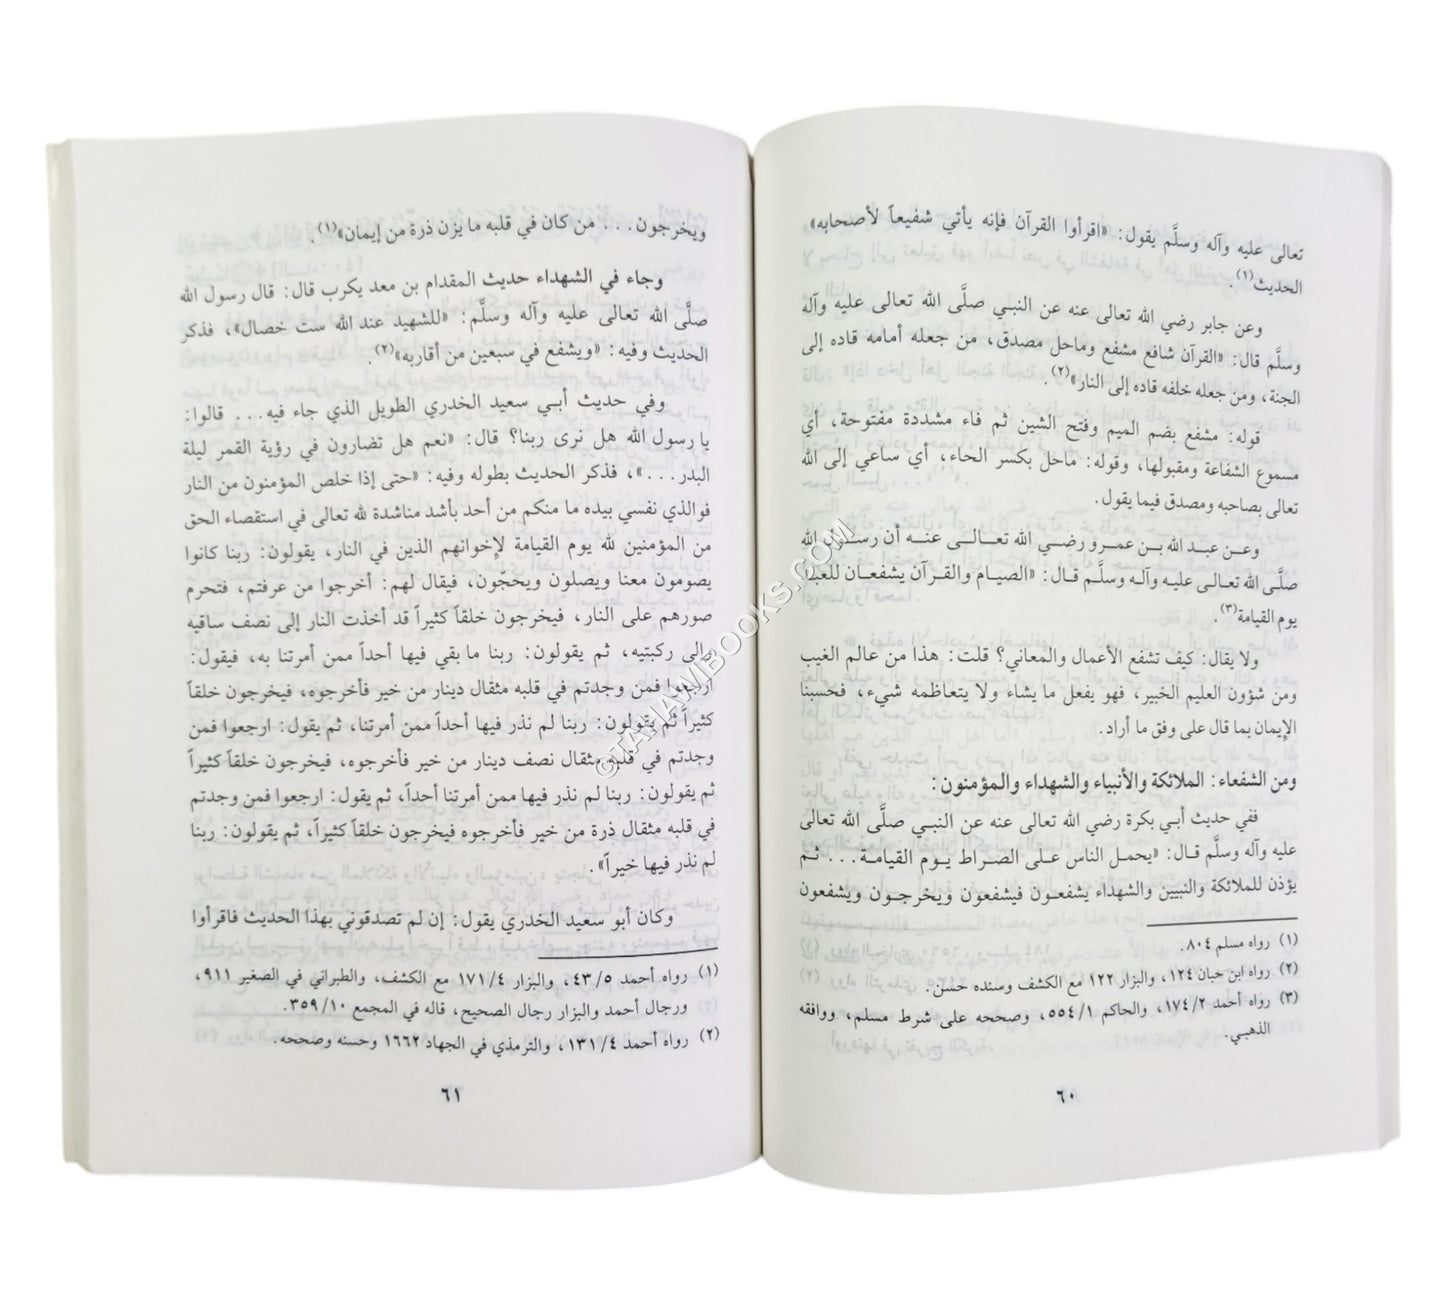 تعالى عليه وآله وسلَّم يقول: «اقرأوا القرآن فإنه يأتي شفيعاً لأصحابه»
الحديث(١).
وعن جابر رضي الله تعالى عنه عن النبي صلَّى الله تعالى عليه وآله
وسلَّم قال: «القرآن شافع مشفع وماحل مصدق، من جعله أمامه قاده إلى
الجنة، ومن جعله خلفه قاده إلى النار»(٢).
قوله: مشفع بضم الميم وفتح الشين ثم فاء مشددة مفتوحة، أي
مسموع الشفاعة ومقبولها، وقوله: ماحل بكسر الحاء، أي ساعي إلى الله
تعالى بصاحبه ومصدق فيما يقول.
وعن عبد الله بن عمرو رضي الله تعالى عنه أن رسول الله
صلَّى الله تعالى عليه وآله وسلَّم قال: «الصيام والقرآن يشفعان للعبد
يوم القيامة»(٣).
ولا يقال: كيف تشفع الأعمال والمعاني؟ قلت: هذا من عالم الغيب
ومن شؤون العليم الخبير، فهو يفعل ما يشاء ولا يتعاظمه شيء، فحسبنا
الإيمان بما قال على وفق ما أراد.
ومن الشفعاء: الملائكة والأنبياء والشهداء والمؤمنون:
ففي حديث أبي بكرة رضي الله تعالى عنه عن النبي صلَّى الله تعالى
عليه وآله وسلَّم قال: «يحمل الناس على الصراط يوم القيامة... ثم
يؤذن للملائكة والنبيين والشهداء يشفعون فيشفعون ويخرجون ويشفعون
(١) رواه مسلم ٨٠٤.
(٢) رواه ابن حبان ١٢٤، والبزار ١٢٢ مع الكشف وسنده حسن.
(٣) رواه أحمد ١٧٤/٢، والحاكم ٥٥٤/١، وصححه على شرط مسلم، ووافقه
الذهبي.
٦٠
ويخرجون... من كان في قلبه ما يزن ذرة من إيمان»(١).
وجاء في الشهداء حديث المقدام بن معد يكرب قال: قال رسول الله
صلَّى الله تعالى عليه وآله وسلَّم: «للشهيد عند الله ست خصال»، فذكر
الحديث وفيه: «ويشفع في سبعين من أقاربه»(٢).
وفي حديث أبي سعيد الخدري الطويل الذي جاء فيه... قالوا:
يا رسول الله هل نرى ربنا؟ قال: «نعم هل تضارون في رؤية القمر ليلة
البدر...»، فذكر الحديث بطوله وفيه: «حتى إذا خلص المؤمنون من النار
فوالذي نفسي بيده ما منكم من أحد بأشد مناشدة لله تعالى في استقصاء الحق
من المؤمنين لله يوم القيامة لإخوانهم الذين في النار، يقولون: ربنا كانوا
يصومون معنا ويصلون ويحجّون، فيقال لهم: أخرجوا من عرفتم، فتحرم
صورهم على النار، فيخرجون خلقاً كثيراً قد أخذت النار إلى نصف ساقيه
وإلى ركبتيه، ثم يقولون: ربنا ما بقي فيها أحداً ممن أمرتنا به، فيقول:
ارجعوا فمن وجدتم في قلبه مثقال دينار من خير فأخرجوه، فيخرجون خلقاً
كثيراً ثم يقولون: ربنا لم نذر فيها أحداً ممن أمرتنا، ثم يقول: ارجعوا فمن
وجدتم في قلبه مثقال نصف دينار من خير فأخرجوه، فيخرجون خلقاً كثيراً
ثم يقولون: ربنا لم نذر فيها ممن أمرتنا أحداً، ثم يقول: ارجعوا فمن وجدتم
في قلبه مثقال ذرة من خير فأخرجوه فيخرجون خلقاً كثيراً، ثم يقولون: ربنا
لم نذر فيها خيراً».
وكان أبو سعيد الخدري يقول: إن لم تصدقوني بهذا الحديث فاقرأوا
(١) رواه أحمد ٤٣/٥، والبزار ١٧١/٤ مع الكشف، والطبراني في الصغير ٩١١،
ورجال أحمد والبزار رجال الصحيح، قاله في المجمع ٣٥٩/١٠.
(٢) رواه أحمد ١٣١/٤، والترمذي في الجهاد ١٦٦٢ وحسنه وصححه.
٦١
©TAHAWIBOOKS.COM